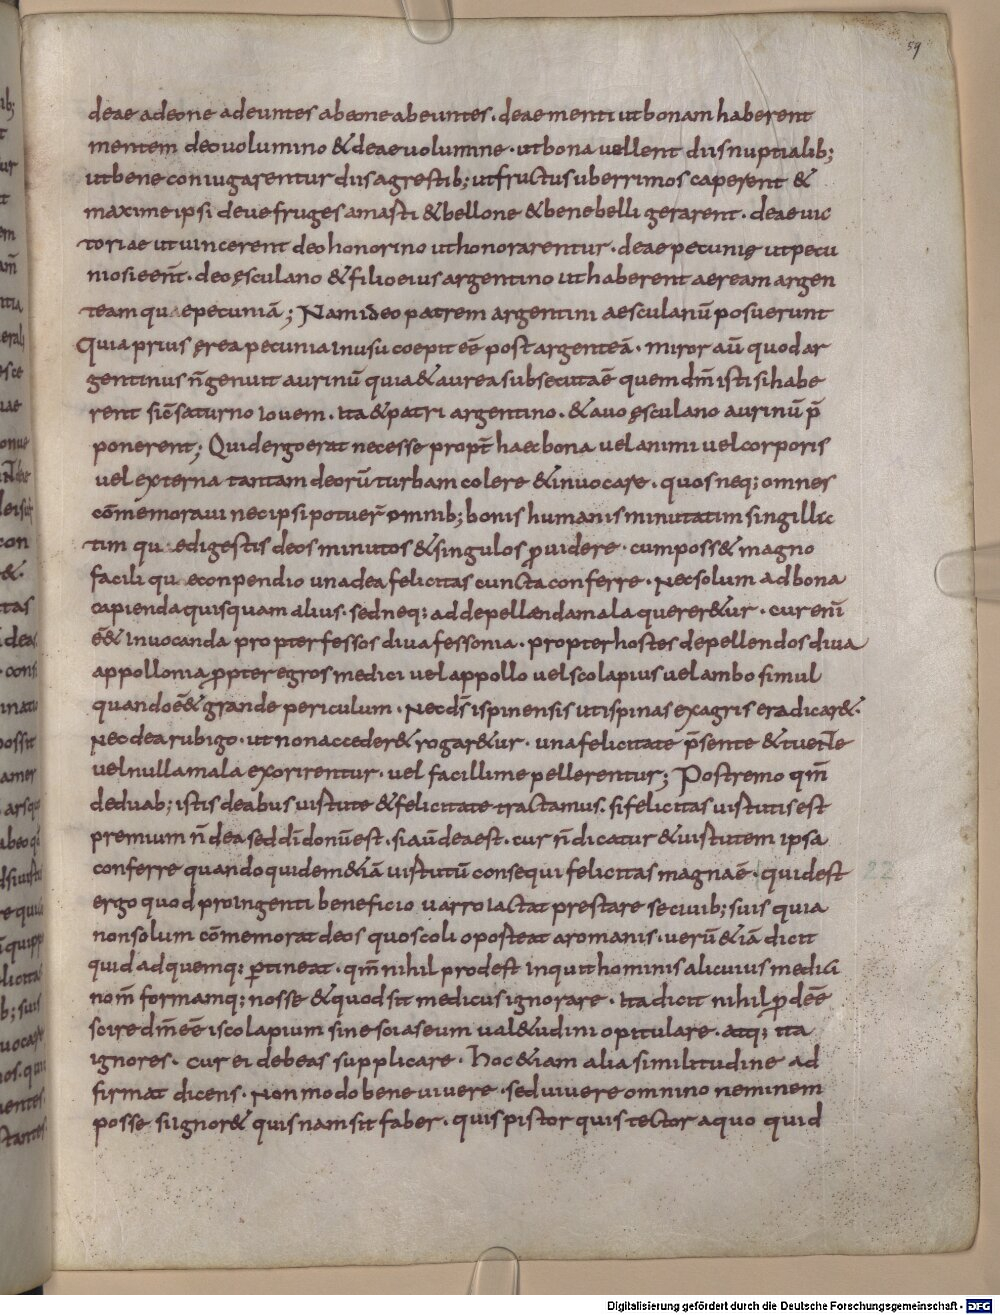 59
deae adeone adeuntes abeone abeuntes. deae menti ut bonam haberent
mentem deo uolumino & deae uolumne. ut bona uellent diis nuptialib;
ut bene coniugarentur diis agrestib; ut fructus uberrimos caperent &
maxime ipsi deuefruges amasti & bellone & bene belli gerarent. deae uic
toriae ut uincerent deo honorino ut honorarentur. deae pecunię ut pecu
niosi eēnt. deo ęsculano & filio eius argentino ut haberent aeream argen
team quaepecuniā; Nam ideo patrem argentini aesculanū posuerunt
Quia prius ęrea pecunia in usu coepit eē post argenteā. miror aū quod ar
gentinus ñ genuit aurinū quia & aurea subsecuta ē quem dm̄ isti si habe
rent sic̄ saturno iouem. ita & patri argentino. & auo ęsculano aurinū p̄
ponerent; Quid ergo erat necesse propt̄ haec bona uel animi uel corporis
uel externa tantam deorū turbam colere & inuocare. quos neq; omnes
cōmemoraui nec ipsi potuer̄ omnib; bonis humanis minutatim singillac
tim qu edigestis deos minutos & singulos ꝓuidere. cum poss& magno
facili qu econpendio una dea felicitas cuncta conferre. Nec solum ad bona
capienda quisquam alius. sed neq; ad depellenda mala querer&ur. cur enī
ē& inuocanda propter fessos diua fessonia. propter hostes depellendos diua
appollonia ꝓpter egros medici uel appollo uel scolapius uel ambo simul
quando ē& grande periculum. Nec ds̄ ispinensis uti spinas ex agris eradicar&.
Nec dea rubigo. ut non acceder& rogar&ur. una felicitate p̄sente & tuente
uel nulla mala exorirentur. uel facillime pellerentur; Postremo qm̄
de duab; istis deabus uirtute & felicitate tractamus. si felicitas uirtutis est
premium ñ dea sed dī donū est. si aū dea est. cur ñ dicatur & uirtutem ipsa
conferre quandoquidem &iā uirtutū consequi felicitas magna ē. quid est
22
ergo quod pro ingenti beneficio uarro iactat prestare se ciuib; suis quia
non solum cōmemorat deos quos coli oporteat a romanis. uerū &iā dicit
quid ad quemq; ꝑtineat. qm̄ nihil prodest inquit hominis alicuius medici
nom̄ formamq; nosse & quod sit medicus ignorare. Ita dicit nihil ꝓdeē
scire dm̄ eē iscolapium si nescias eum ual&udini opitulare. atq; ita
ignores. cur ei debeas supplicare. hoc &iam alia similitudine ad
firmat dicens. Non modo bene uiuere. sed uiuere omnino neminem
posse si ignor& quisnam sit faber. quis pistor quis tector a quo quid
Digitalisierung gefördert durch die Deutsche Forschungsgemeinschaft - DFG